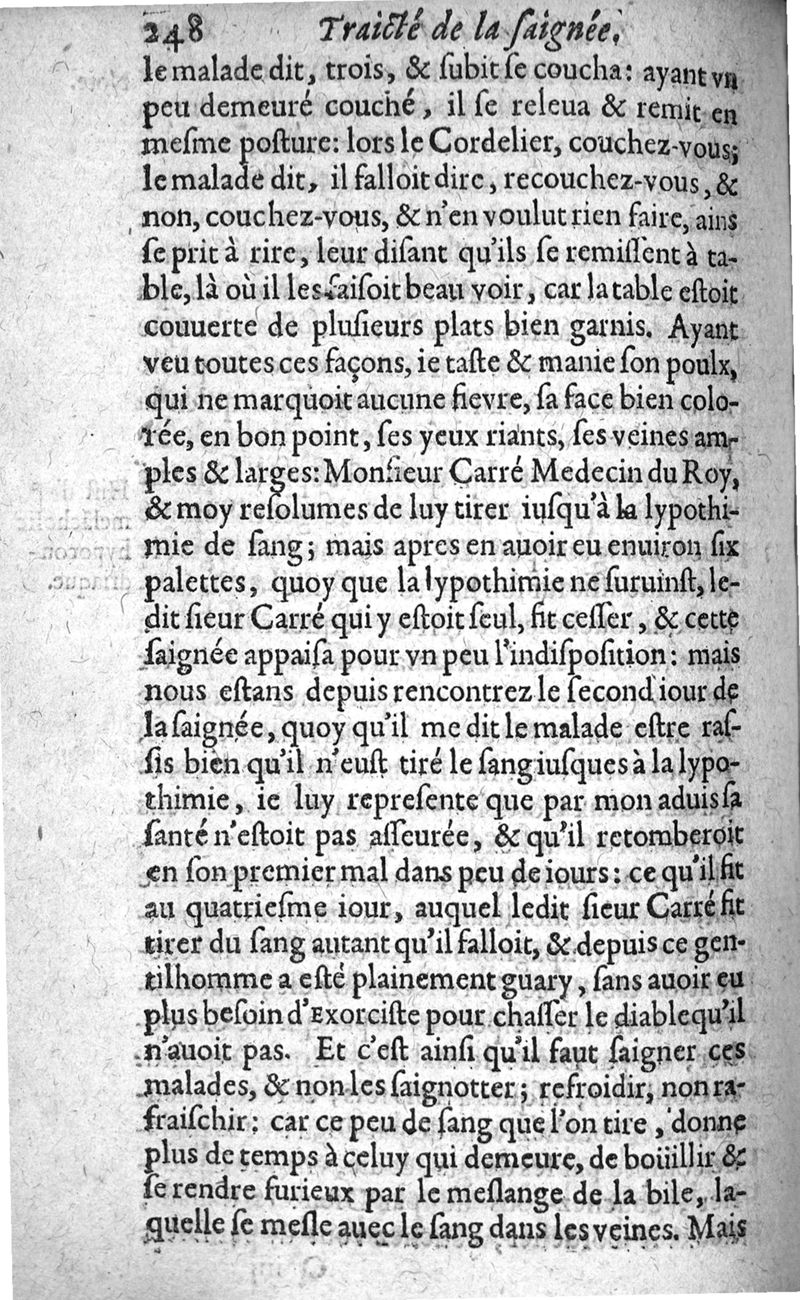 248 Traicté de la ſaignée,
le malade dit, trois, & ſubit ſe coucha: ayant vn
peu demeuré couché, il ſe releua & remit en
meſme poſture: lors le Cordelier, couchez-vous;
le malade dit, il falloit dire, recouchez-vous, &
non, couchez-vous, & n'en voulut rien faire, ains
ſe prit à rire, leur diſant qu'ils ſe remiſſent à ta-
ble, là où il les faiſoit beau voir, car la table eſtoit
couuerte de pluſieurs plats bien garnis. Ayant
veu toutes ces façons, ie taſte & manie ſon poulx,
qui ne marquoit aucune fievre, ſa face bien colo-
rée, en bon point, ſes yeux riants, ſes veines am-
ples & larges: Monſieur Carré Medecin du Roy,
& moy reſolumes de luy tirer iuſqu'à la lypothi-
mie de ſang; mais apres en auoir eu enuiron ſix
palettes, quoy que la lypothimie ne ſuruinſt, le-
dit ſieur Carré qui y eſtoit ſeul, fit ceſſer, & cette
ſaignée appaiſa pour vn peu l'indiſpoſition: mais
nous eſtans depuis rencontrez le ſecond iour de
la ſaignée, quoy qu'il me dit le malade eſtre raſ-
ſis bien qu'il n'euſt tiré le ſang iuſques à la lypo-
thimie, ie luy repreſente que par mon aduis ſa
ſanté n'eſtoit pas aſſeurée, & qu'il retomberoit
en ſon premier mal dans peu de iours: ce qu'il fit
au quatrieſme iour, auquel ledit ſieur Carré fit
tirer du ſang autant qu'il falloit, & depuis ce gen-
tilhomme a eſté plainement guary, ſans auoir eu
plus beſoin d'Exorciſte pour chaſſer le diable qu'il
n'auoit pas. Et c'eſt ainſi qu'il faut ſaigner ces
malades, & non les ſaignotter; refroidir, non ra-
fraiſchir; car ce peu de ſang que l'on tire, donne
plus de temps à celuy qui demeure, de boüillir &
ſe rendre furieux par le meſlange de la bile, la-
quelle ſe meſle auec le ſang dans les veines. Mais